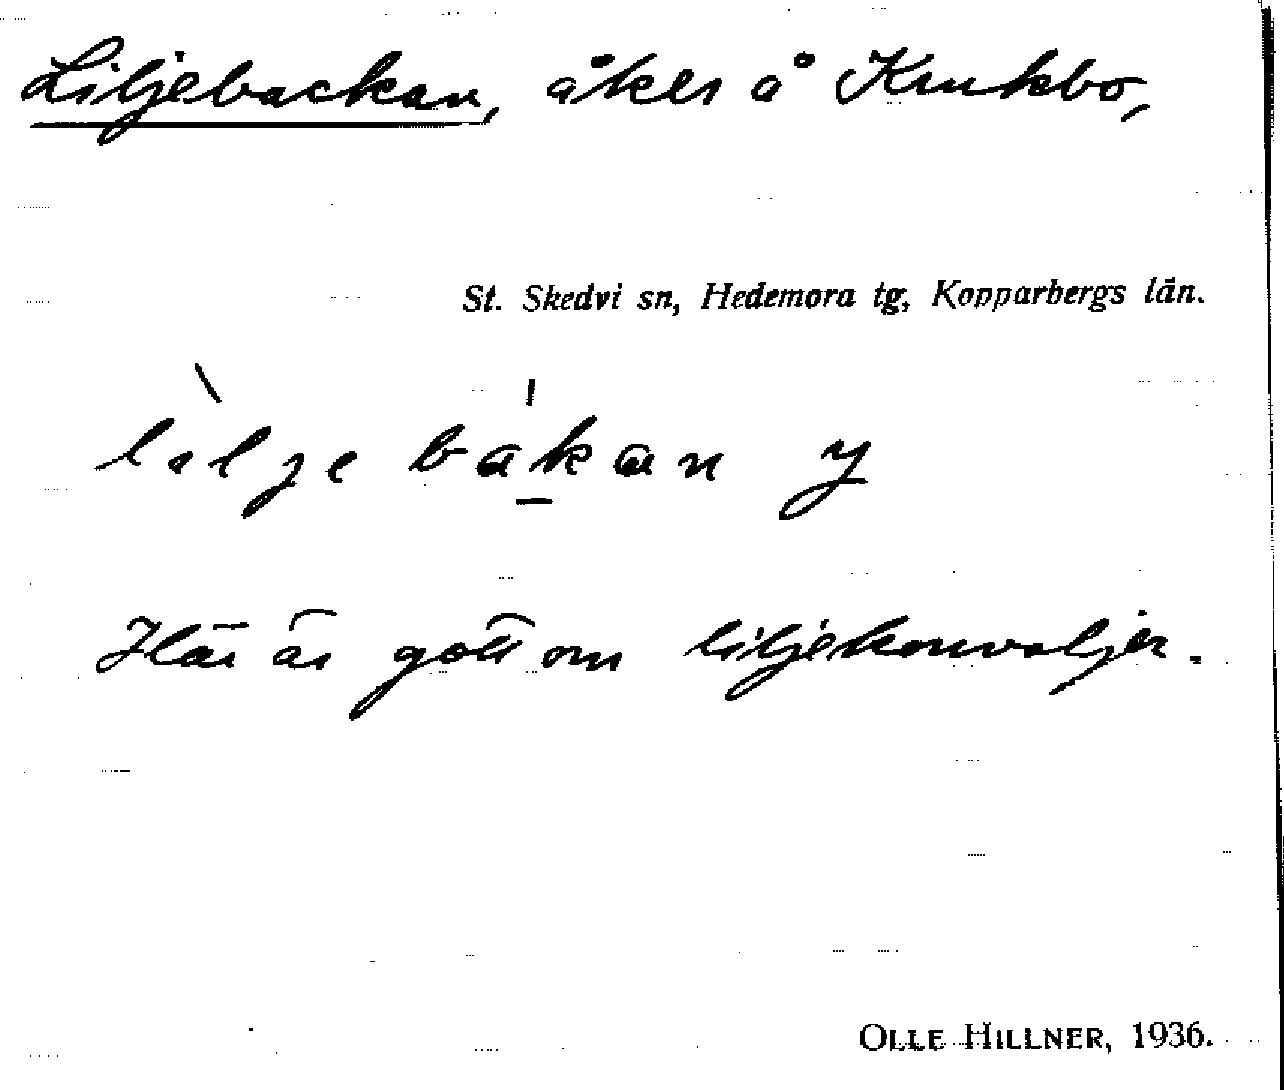 Liljebackan, åker å Krukbo,
St. Skedvi sn, Hedemora tg, Kopparbergs län.
lilje bakan y
Här är gott om liljekonvaljer.
OLLE HILLNER, 1936.